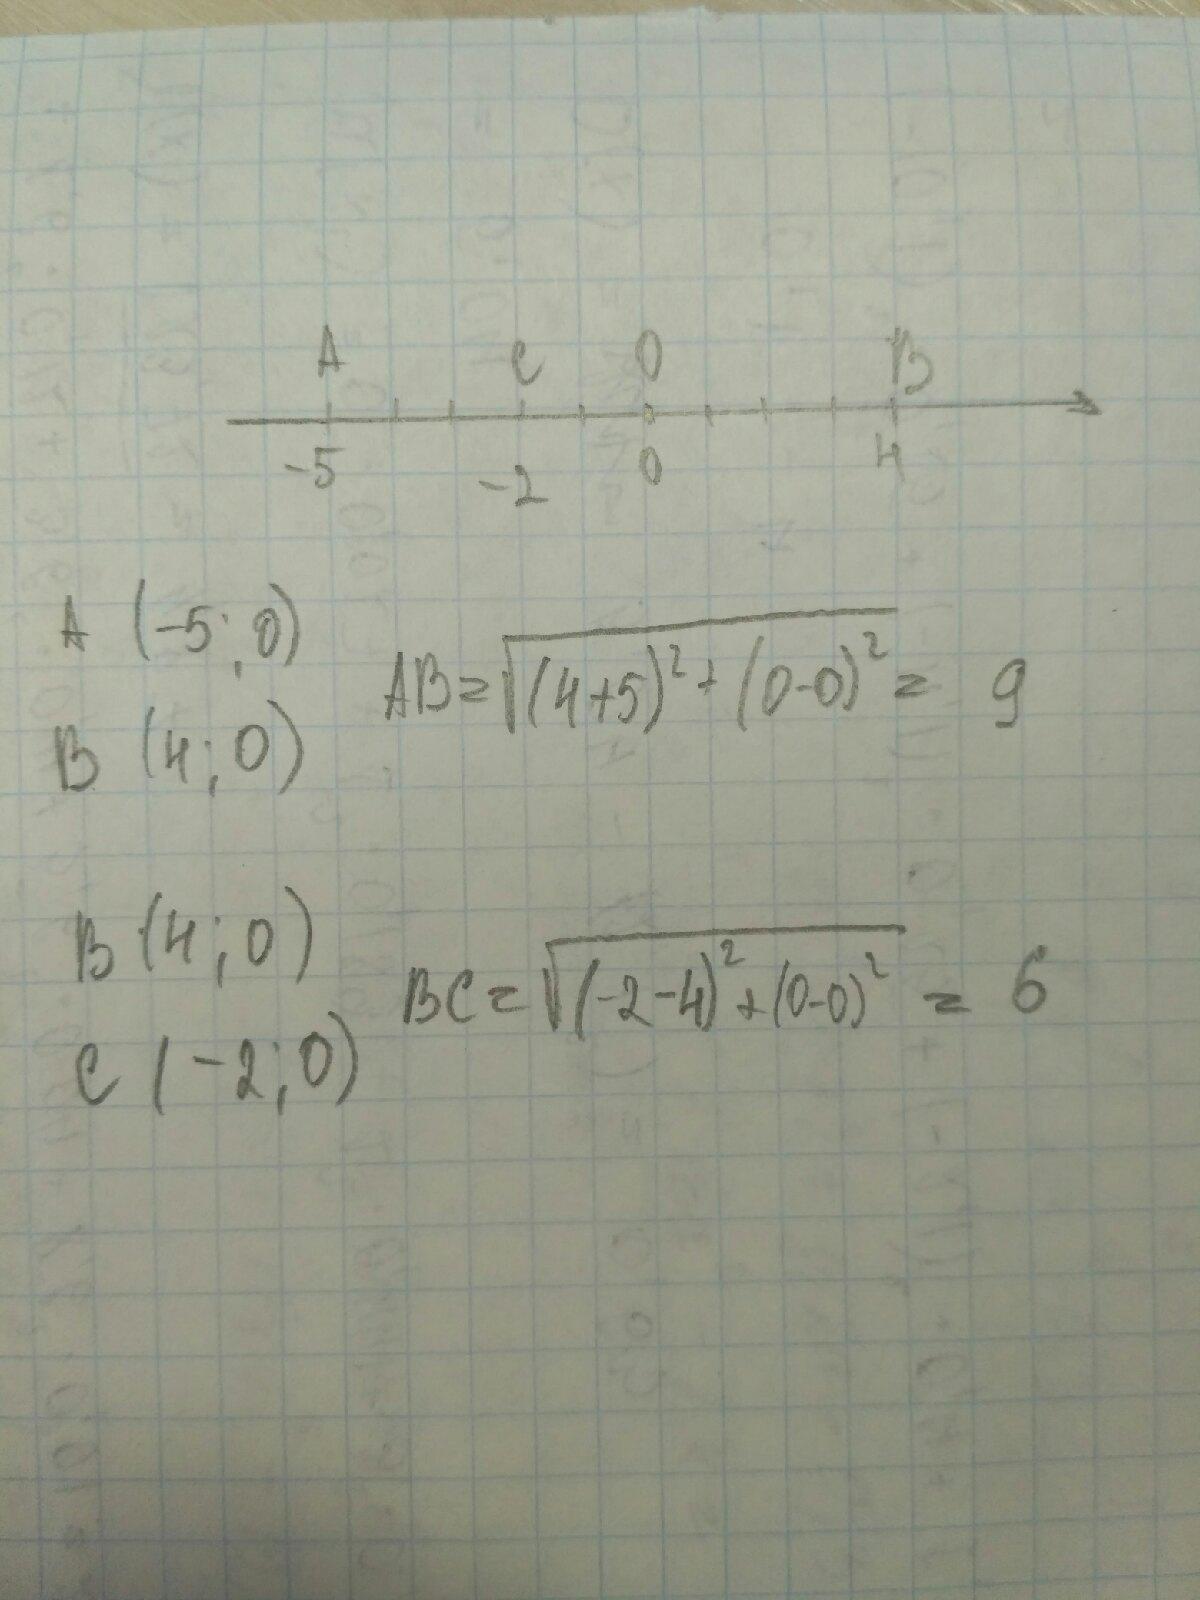 A C O B
-5 -2 0 4
A (-5; 0)
AB = √((4+5)² + (0-0)²) = 9
B (4; 0)
B (4; 0)
BC = √((-2-4)² + (0-0)²) = 6
C (-2; 0)